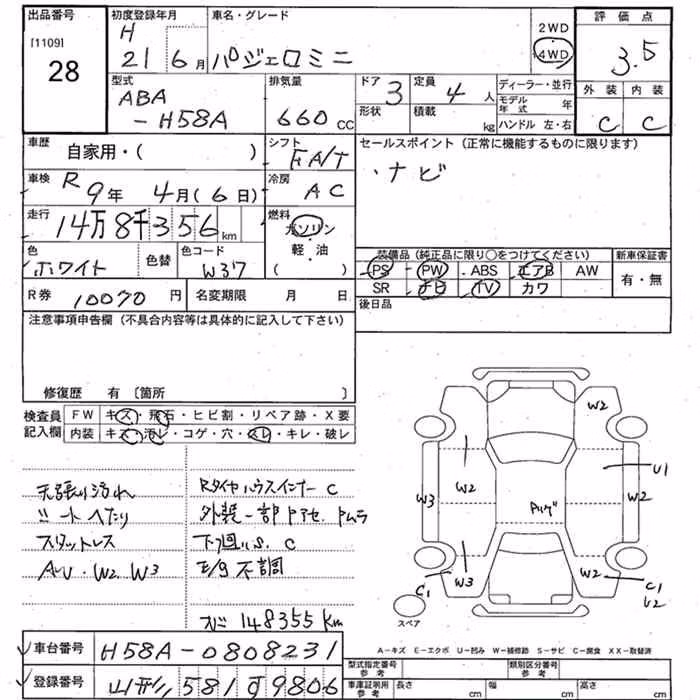 出品番号
[1109]
28
初度登録年月
H
21 6月
車名・グレード
パジェロミニ
2WD
4WD
評価点
3.5
外装 内装
C C
型式
ABA
-H58A
排気量
660 CC
ドア 3
形状
定員 4 人
積載 kg
ディーラー・並行
モデル年式 年
ハンドル 左・右
車歴
自家用・( )
シフト
FA/T
セールスポイント (正常に機能するものに限ります)
・ナビ
車検 R 9年 4月(6日)
冷房 AC
走行 14万8千356km
燃料
ガソリン
・
軽・油
( )
色 ホワイト
色替
色コード W37
装備品 (純正品に限り○をつけてください)
新車保証書
PS PW ABS エアB AW
SR ナビ TV カワ
有・無
R券 10070 円
名変期限 月 日
後日品
注意事項申告欄 (不具合内容等は具体的に記入して下さい)
修復歴 有 〔箇所 〕
検査員
記入欄
FW キズ・飛石・ヒビ割・リペア跡・X要
内装 キズ・汚レ・コゲ・穴・スレ・キレ・破レ
天張り汚れ
シートへたり
スタットレス
AU・W2 W3
RタイヤハウスインナーC
外装一部アセ、ムラ
下廻りS、C
E/g不調
スピ148355km
W2
U1
W2
W3
W2
W3
W2
C1
C1
U2
スペア
A-キズ E-エクボ U-凹み W-補修跡 S-サビ C-腐食 XX-取替済
車台番号 H58A-0808231
登録番号 山形 581 す 9806
型式指定番号
参考
類別区分番号
参考
車庫証明用
参考
長さ cm
幅 cm
高さ cm